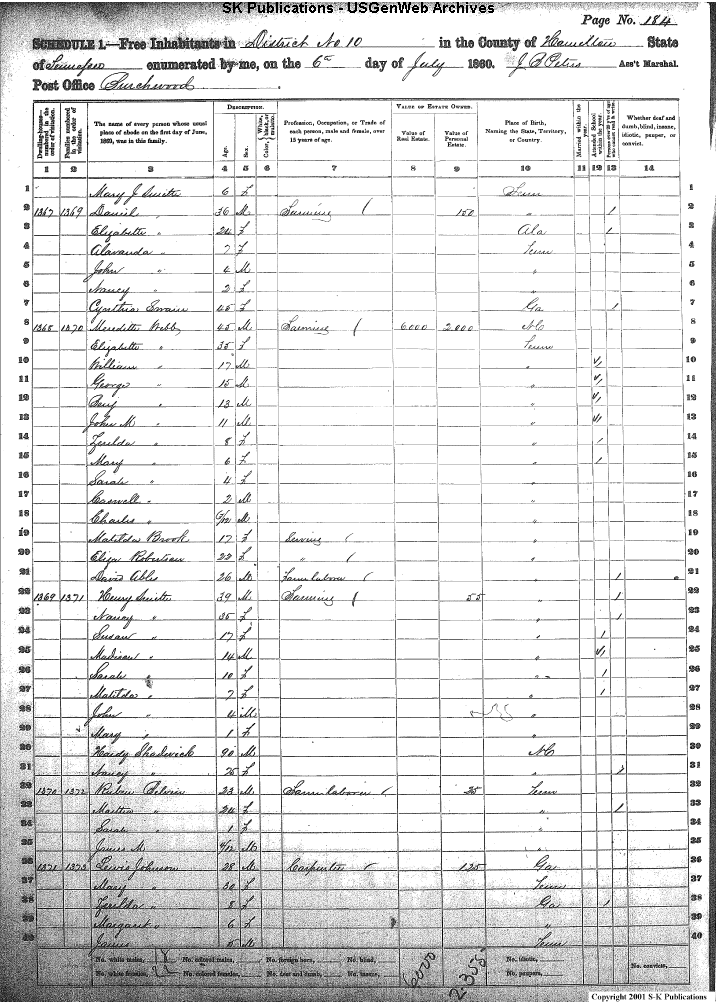 SK Publications - USGenWeb Archives
Page No. 184
SCHEDULE 1.—Free Inhabitants in District No 10 in the County of Hamilton State
of Tennessee enumerated by me, on the 6th day of July 1860. Ass't Marshal.
Post Office Burchwood.
DESCRIPTION. VALUE OF ESTATE OWNED.
Dwelling-houses—numbered in the order of visitation. Families numbered in the order of visitation. The name of every person whose usual place of abode on the first day of June, 1860, was in this family. Age. Sex. Color, White, black, or mulatto. Profession, Occupation, or Trade of each person, male and female, over 15 years of age. Value of Real Estate. Value of Personal Estate. Place of Birth, Naming the State, Territory, or Country. Married within the year. Attended School within the year. Whether deaf and dumb, blind, insane, idiotic, pauper, or convict.
1 2 3 4 5 6 7 8 9 10 11 12 13 14
1 Mary J Smith 6 f Tenn 1
2 1367 1369 Daniel " 36 M Farming 150 " / 2
3 Elizabeth " 24 f Ala / 3
4 " 7 f Tenn 4
5 John " 4 M " 5
6 Nancy " 2 f " 6
7 Cynthia 45 f Ga / 7
8 1368 1370 Meredith Webb 45 M Farming 6000 2,000 NC 8
9 Elizabeth " 35 f Tenn 9
10 William " 17 M " 10
11 George " 15 M " 11
12 Benj " 13 M " 12
13 John M " 11 M " 13
14 Zerilda " 8 f " / 14
15 Mary " 6 f " / 15
16 Sarah " 4 f " 16
17 Caswell " 2 M " 17
18 Charles " M " 18
19 Matilda Brook 17 f Serving " 19
20 Eliza Robertson 22 f " " 20
21 David Ables 26 M Farm laborer " / 21
22 1369 1371 Henry Smith 39 M Farming 55 " / 22
23 Nancy " 35 f " / 23
24 Susan " 17 f " / 24
25 Madison " 14 M " 25
26 Sarah " 10 f " / 26
27 Matilda " 7 f " / 27
28 John " 4 M " 28
29 Mary " 1 f " 29
30 Hardy Shadwick 90 M NC 30
31 Nancy " 75 f " / 31
32 1370 1372 23 M Farm laborer 25 Tenn 32
33 Martha " 24 f " / 33
34 Sarah " 1 f " 34
35 James M " M " 35
36 1371 1373 Lewis Johnson 28 M Carpenter 125 Ga 36
37 Mary " 30 f Tenn 37
38 Zerilda " 8 f Ga / 38
39 Margaret " 6 f " 39
40 James " 5 M Tenn 40
No. white males, 18 No. colored males, No. foreign born, No. blind, 6000 2355 No. idiotic, No. convicts,
No. white females, 22 No. colored females, No. deaf and dumb, No. insane, No. paupers,
Copyright 2001 S-K Publications